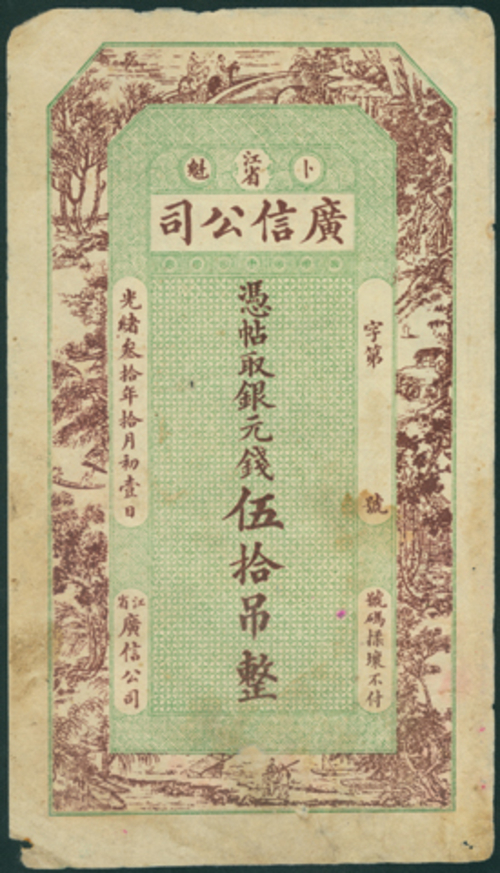 卜 江省 魁
廣信公司
字第 號
憑帖取銀元錢伍拾吊整
光緒叁拾年拾月初壹日
號碼揉壞不付
江省廣信公司